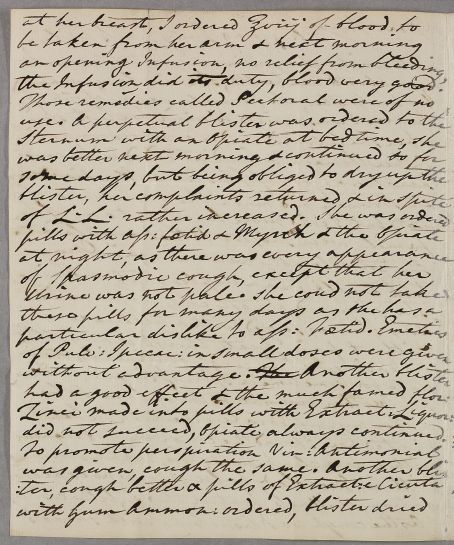 at her breast, I ordered ℥viij of blood to
be taken from her arm & next morning
an opening Infusion, no relief from bleeding,
the Infusion did its duty, blood very good.
Those remedies called Pectoral were of no
use. A perpetual blister was ordered to the
Sternum with an Opiate at bedtime, she
was better next morning & continued so for
some days, but being obliged to dry up the
blister, her complaints returned & in spite
of rather increased. She was ordered
pills with ass: fœtid & Myrrh & the Opiate
at night, as there was every appearance
of Spasmodic cough, except that her
Urine was not pale. She coud not take
these pills for many days as she has a
particular dislike to ass: fœtid. Emetics
of Pulv: Ipecac: in small doses were given
without advantage. Another blister
had a good effect & the much famed Flor:
Zinci made into pills with Extract: Liquor:
did not succeed, Opiate always continued.
To promote perspiration Vin: Antimonial
was given, cough the same. Another blis-
ter, cough better & pills of Extract: Cicuta
with Gum Ammon: ordered, blister dried